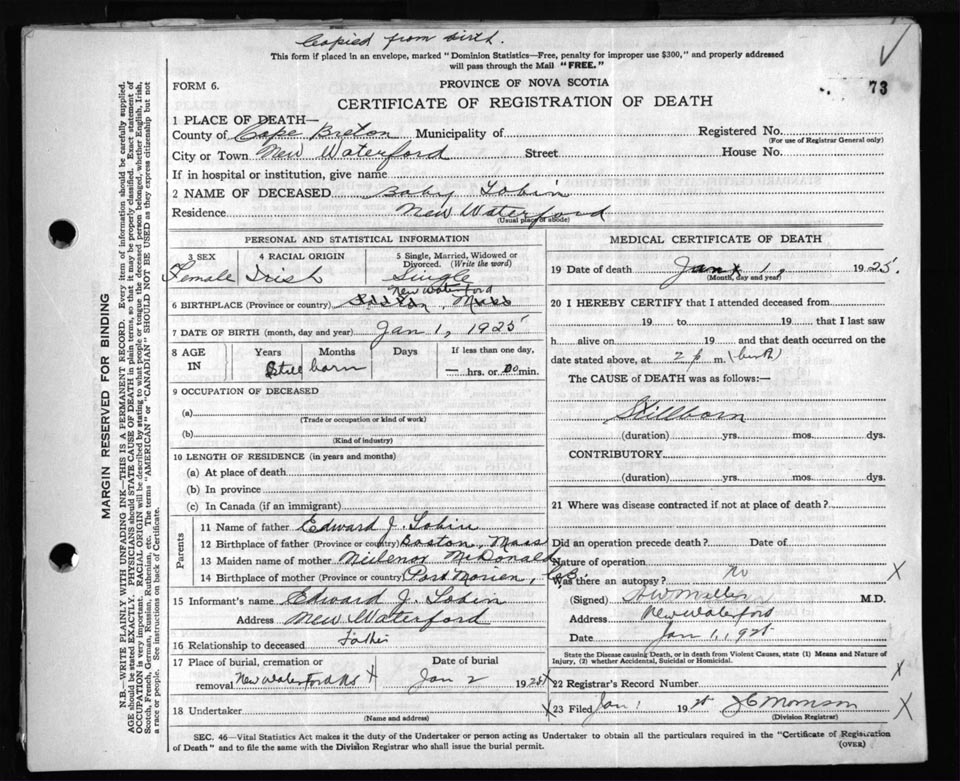 Copied from birth.
This form if placed in an envelope, marked "Dominion Statistics—Free, penalty for improper use $300," and properly addressed
will pass through the Mail "FREE."
FORM 6.
PROVINCE OF NOVA SCOTIA
73
CERTIFICATE OF REGISTRATION OF DEATH
1 PLACE OF DEATH—
County of Cape Breton Municipality of Registered No.
(For use of Registrar General only)
City or Town New Waterford Street House No.
If in hospital or institution, give name
2 NAME OF DECEASED Baby Tobin
Residence New Waterford
(Usual place of abode)
PERSONAL AND STATISTICAL INFORMATION
3 SEX 4 RACIAL ORIGIN 5 Single, Married, Widowed or
Divorced. (Write the word)
Female Irish Single
New Waterford
6 BIRTHPLACE (Province or country)
7 DATE OF BIRTH (month, day and year) Jan 1, 1925
8 AGE IN Years Months Days If less than one day,
Still born — hrs. or min.
9 OCCUPATION OF DECEASED
(a)
(Trade or occupation or kind of work)
(b)
(Kind of industry)
10 LENGTH OF RESIDENCE (in years and months)
(a) At place of death
(b) In province
(c) In Canada (if an immigrant)
Parents
11 Name of father Edward J. Tobin
12 Birthplace of father (Province or country) Boston, Mass
13 Maiden name of mother McDonald
14 Birthplace of mother (Province or country) Port Morien, C.B.
15 Informant's name Edward J. Tobin
Address New Waterford
16 Relationship to deceased Father
17 Place of burial, cremation or Date of burial
removal New Waterford NS X Jan 2 1925 X
18 Undertaker X
(Name and address)
MEDICAL CERTIFICATE OF DEATH
19 Date of death Jan 1, 1925.
(Month, day and year)
20 I HEREBY CERTIFY that I attended deceased from
19 to 19 that I last saw
h alive on 19 and that death occurred on the
date stated above, at 2 p m. (birth)
The CAUSE OF DEATH was as follows:—
Stillborn
(duration) yrs. mos. dys.
CONTRIBUTORY
(duration) yrs. mos. dys.
21 Where was disease contracted if not at place of death?
Did an operation precede death? Date of
Nature of operation
Was there an autopsy? No X
(Signed) M.D.
Address New Waterford
Date Jan 1, 1925
State the Disease causing Death, or in death from Violent Causes, state (1) Means and Nature of
Injury, (2) whether Accidental, Suicidal or Homicidal.
22 Registrar's Record Number X
23 Filed Jan 1 1925 X
(Division Registrar)
SEC. 46—Vital Statistics Act makes it the duty of the Undertaker or person acting as Undertaker to obtain all the particulars required in the "Certificate of Registration
of Death" and to file the same with the Division Registrar who shall issue the burial permit.
(OVER)
MARGIN RESERVED FOR BINDING
N.B.—WRITE PLAINLY WITH UNFADING INK—THIS IS A PERMANENT RECORD. Every item of information should be carefully supplied.
AGE should be stated EXACTLY. PHYSICIANS should STATE CAUSE OF DEATH in plain terms, so that it may be properly classified. Exact statement of
OCCUPATION is very important. RACIAL ORIGIN will be described by stating to what people or tongue the deceased person belonged, whether English, Irish,
Scotch, French, German, Russian, Ruthenian, etc. The terms "AMERICAN" or "CANADIAN" SHOULD NOT BE USED as they express citizenship but not
a race or people. See instructions on back of Certificate.